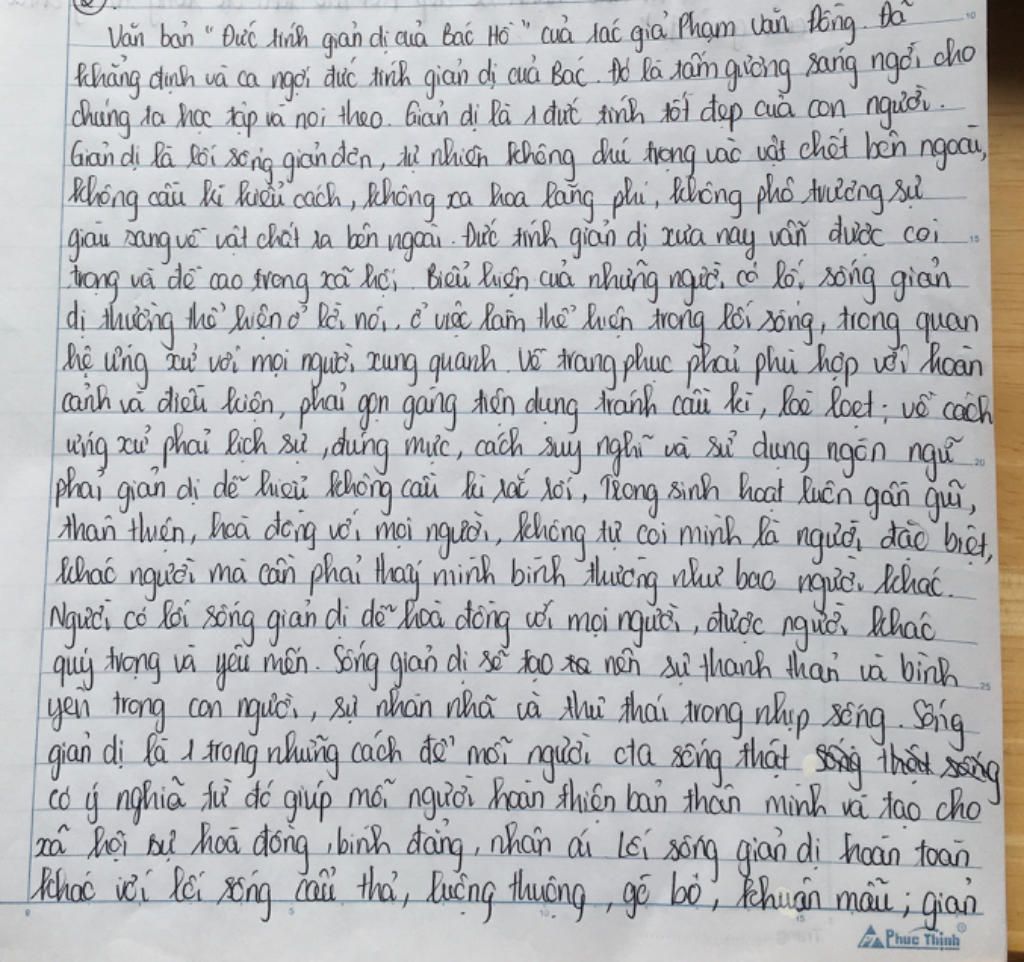 2
Văn bản "Đức tính giản dị của Bác Hồ" của tác giả Phạm Văn Đồng. Đã
khẳng định và ca ngợi đức tính giản dị của Bác. Đó là tấm gương sáng ngời cho
chúng ta học tập và noi theo. Giản dị là 1 đức tính tốt đẹp của con người.
Giản dị là lối sống giản đơn, tự nhiên không chú trọng vào vật chất bên ngoài,
không cầu kì kiểu cách, không xa hoa lãng phí, không phô trương sự
giàu sang về vật chất ra bên ngoài. Đức tính giản dị xưa nay vẫn được coi
trọng và đề cao trong xã hội. Biểu hiện của những người có lối sống giản
dị thường thể hiện ở lời nói, ở việc làm thể hiện trong lối sống, trong quan
hệ ứng xử với mọi người xung quanh. Về trang phục phải phù hợp với hoàn
cảnh và điều kiện, phải gọn gàng tiện dụng tránh cầu kì, loè loẹt; về cách
ứng xử phải lịch sự, đúng mực, cách suy nghĩ và sử dụng ngôn ngữ
phải giản dị dễ hiểu không cầu kì sắc sói, Trong sinh hoạt luôn gần gũi,
thân thiện, hoà đồng với mọi người, không tự coi mình là người đặc biệt,
khác người mà cần phải thấy mình bình thường như bao người khác.
Người có lối sống giản dị dễ hoà đồng với mọi người, được người khác
quý trọng và yêu mến. Sống giản dị sẽ tạo ra nên sự thanh thản và bình
yên trong con người, sự nhàn nhã và thư thái trong nhịp sống. Sống
giản dị là 1 trong những cách để mỗi người cta sống thật sống thật sống
có ý nghĩa từ đó giúp mỗi người hoàn thiện bản thân mình và tạo cho
xã hội sự hoà đồng, bình đẳng, nhân ái Lối sống giản dị hoàn toàn
khác với lối sống cẩu thả, luộng thuộng, gò bó, khuân mẫu; giản
Phuc Thinh